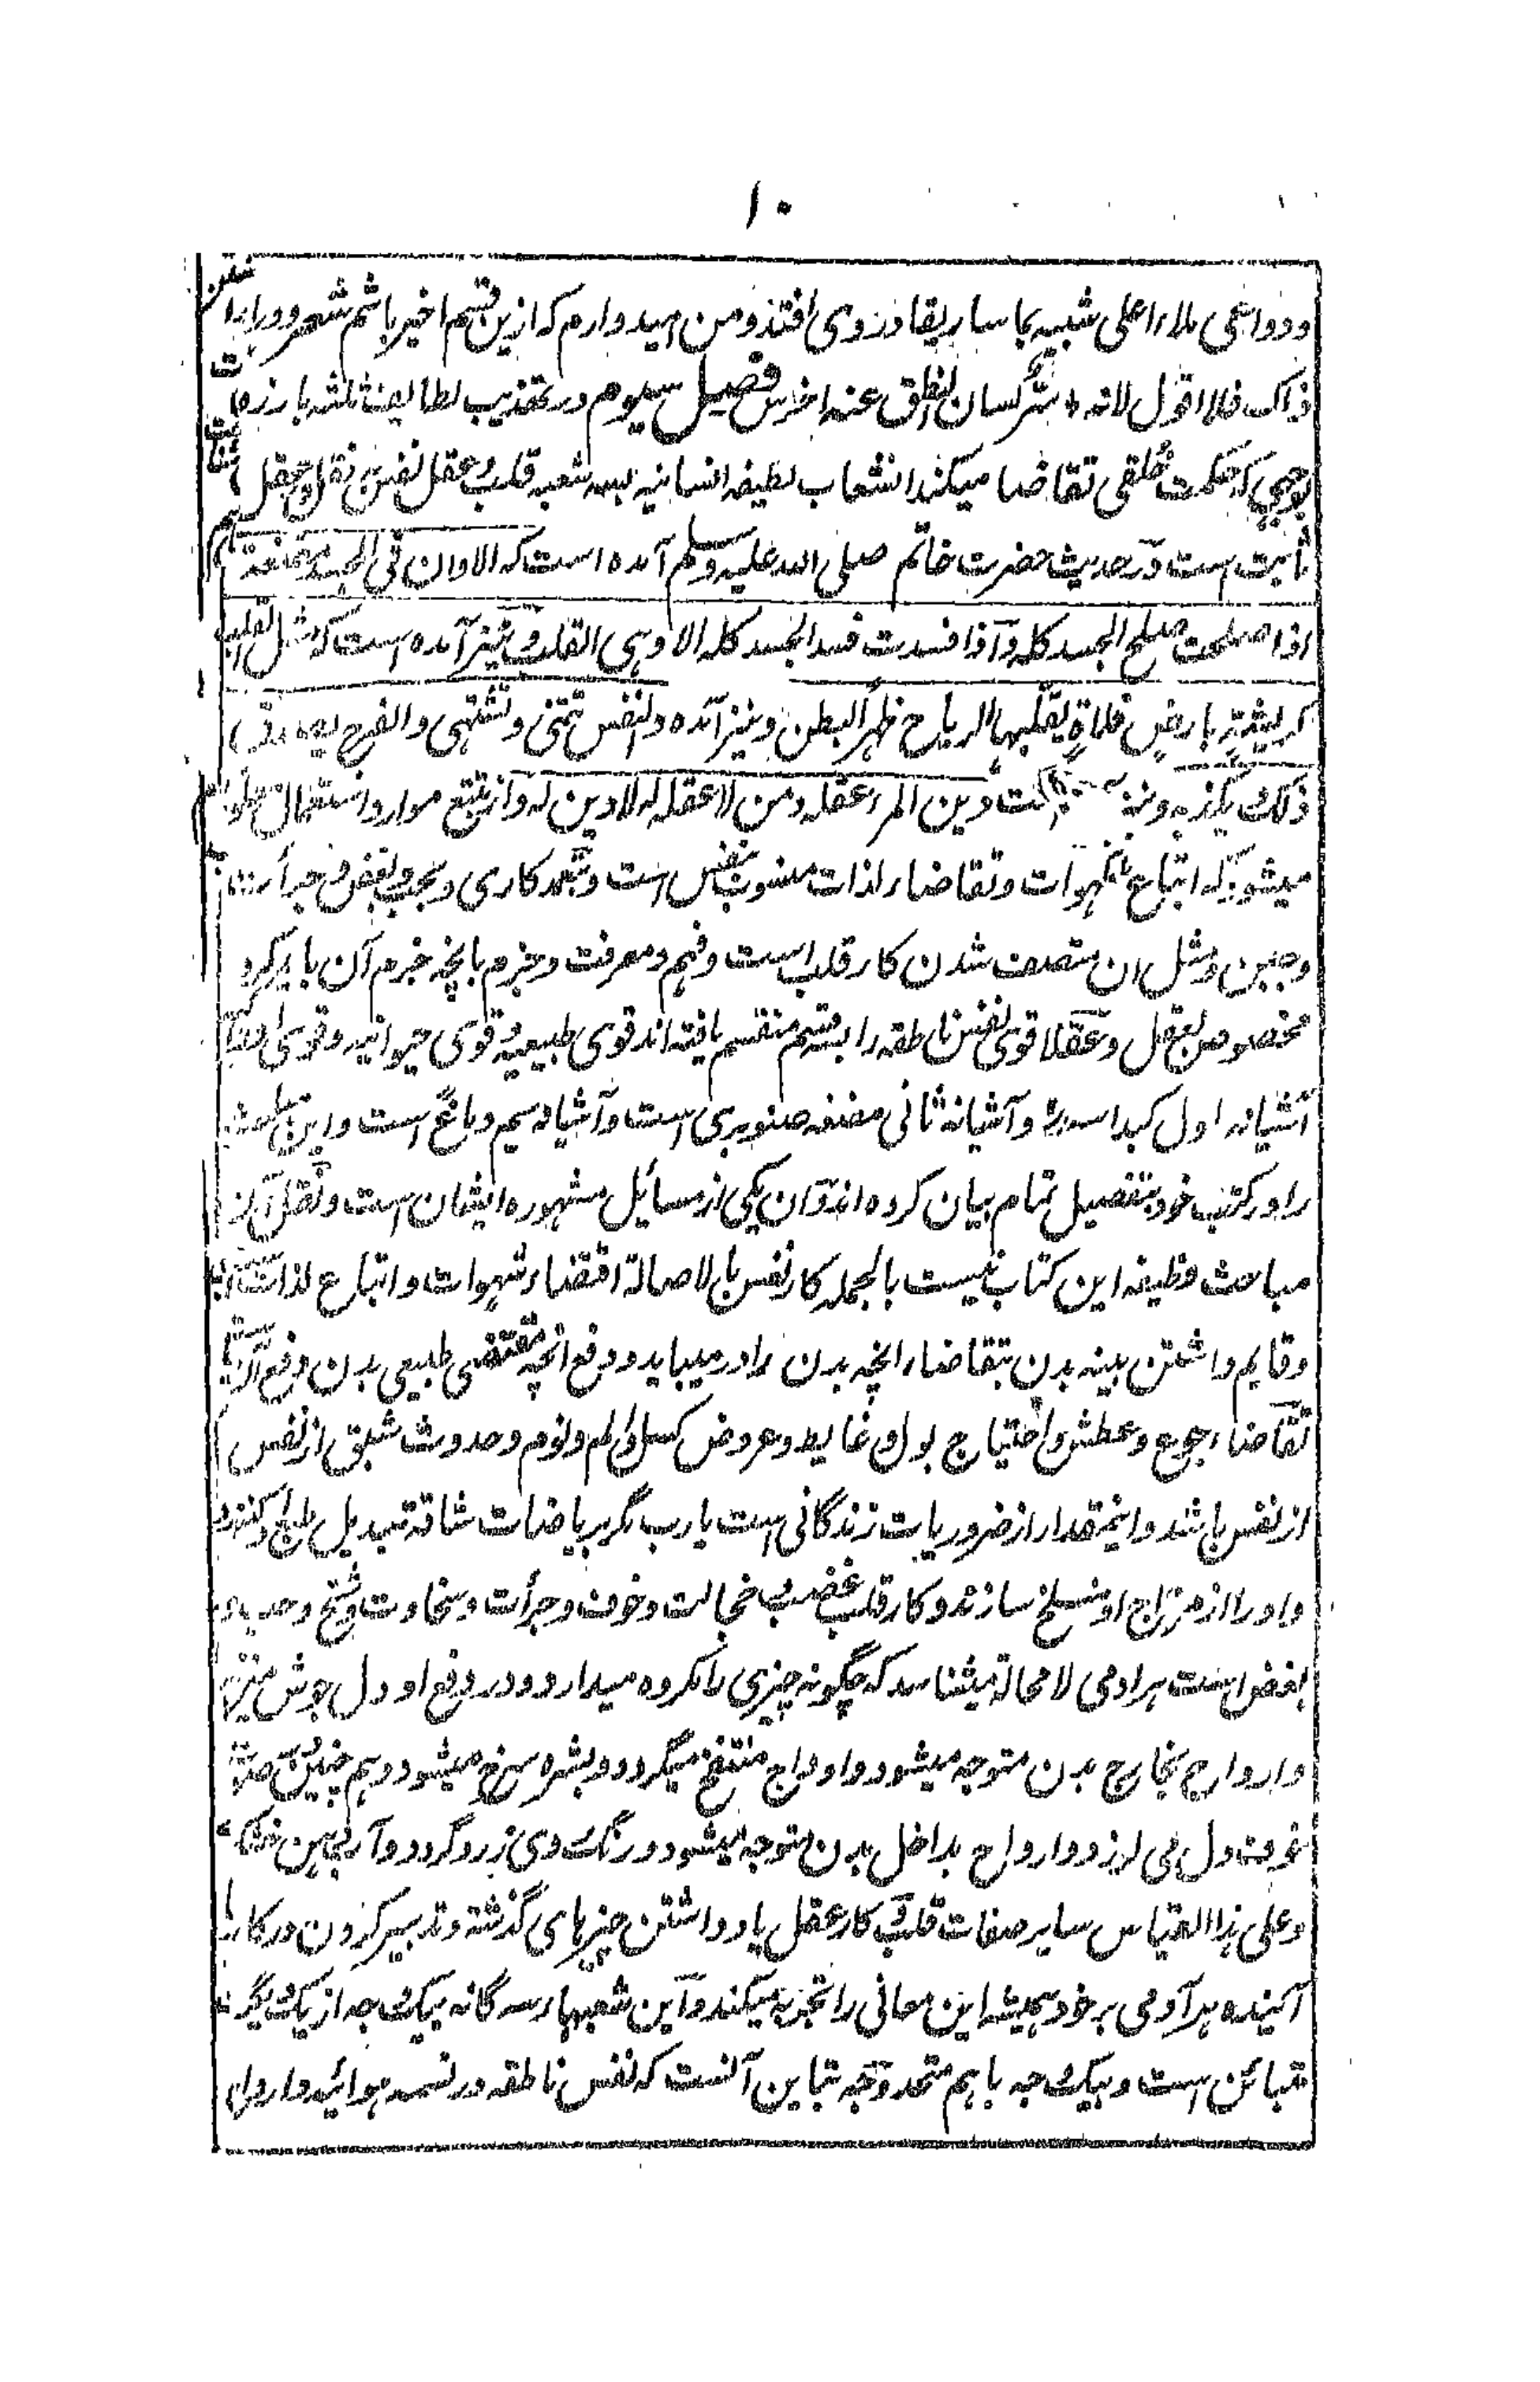 ۱۰
ودواعی ملاء اعلی شبیه بجا ساریقا در وی افتد ومن امیدوارم که ازین قسم اخیر باشم شعر وورا
ذاک فلا اقول لانه * سر لسان النطق عنه اخرس فصل سیوم در تهذیب لطایف ثلثه بارزه
حکمت خلقی تقاضا میکند انشعاب لطیفه انسانیه بسه شعبه قلب وعقل ونفس نقل وعقل
ثابت است ودر حدیث حضرت خاتم صلی الله علیه وسلم آمده است که الا وان فی الجسد مضغة
اذا صلحت صلح الجسد کله واذا فسدت فسد الجسد کله الا وهی القلب ونیز آمده است که مثل القلب
کریشة بارض فلاة یقلبها الریاح ظهر البطن ونیز آمده والنفس تتمنی وتشتهی والفرج یصدق
ذلک ویکذبه ودین المرء عقله ومن لا عقل له لا دین له واز تتبع موارد استعمال
میشود که اتباع شهوات وتقاضاء لذات منسوب بنفس است وکاری وبحب وبغض وجرأت
وجبن ومثل ان متصف شدن کار قلب است وفهم ومعرفت وجزم بانچه جزم آن باید کرد
مخصوص بعقل وعقلا قوی نفس ناطقه را بسه قسم منقسم یافته اند قوی طبیعیه وقوی حیوانیه وقوی
آشیانه اول کبد است وآشیانه ثانی مضغه صنوبری است وآشیانه سیم دماغ است واین
را در کتب خود بتفصیل تمام بیان کرده اند وان یکی از مسائل مشهوره ایشان است ونقل آن
مباحث وظیفه این کتاب نیست بالجمله کار نفس بالاصالة اقتضاء شهوات واتباع لذات است
وقایم داشتن بینه بدن بتقاضاء انچه بدن را در میباید ودفع انچه مقتضی طبیعی بدن دفع
تقاضاء جوع وعطش واحتیاج بول وغایط وعروض کسل والم ونوم وحدوث شبق از نفس
از نفس باشد واینمقدار از ضروریات زندگانی است یارب مگر بریاضات شاقه تبدیل مزاج او کنند
واو را از مزاج او منسلخ سازند وکار قلب غضب خجالت وخوف وجرأت وسخاوت وشح وحب و
بغض است هر ادمی لا محالة میشناسد که چگونه چیزی را مکروه میدارد ودر دفع او دل جوش میزند
وارواح بخارج بدن متوجه میشود واوداج منتفخ میگردد وبشره سرخ میشود وهم چنین
خوف دل می لرزد وارواح بداخل بدن متوجه میشود ورنگ وی زرد گردد وآب دهن خشک
وعلی هذا القیاس سایر صفات قلب وکار عقل یاد داشتن چیزهای گذشته وتدبیر کردن در کار
آینده هر آدمی بر خود همیشه این معانی را تجربه میکند واین شعبهاء سه گانه بیک وجه از یک دیگر
متبائن است وبیک وجه باهم متحد ووجه تباین آنست که نفس ناطقه در نسمه هوائیه وارواح